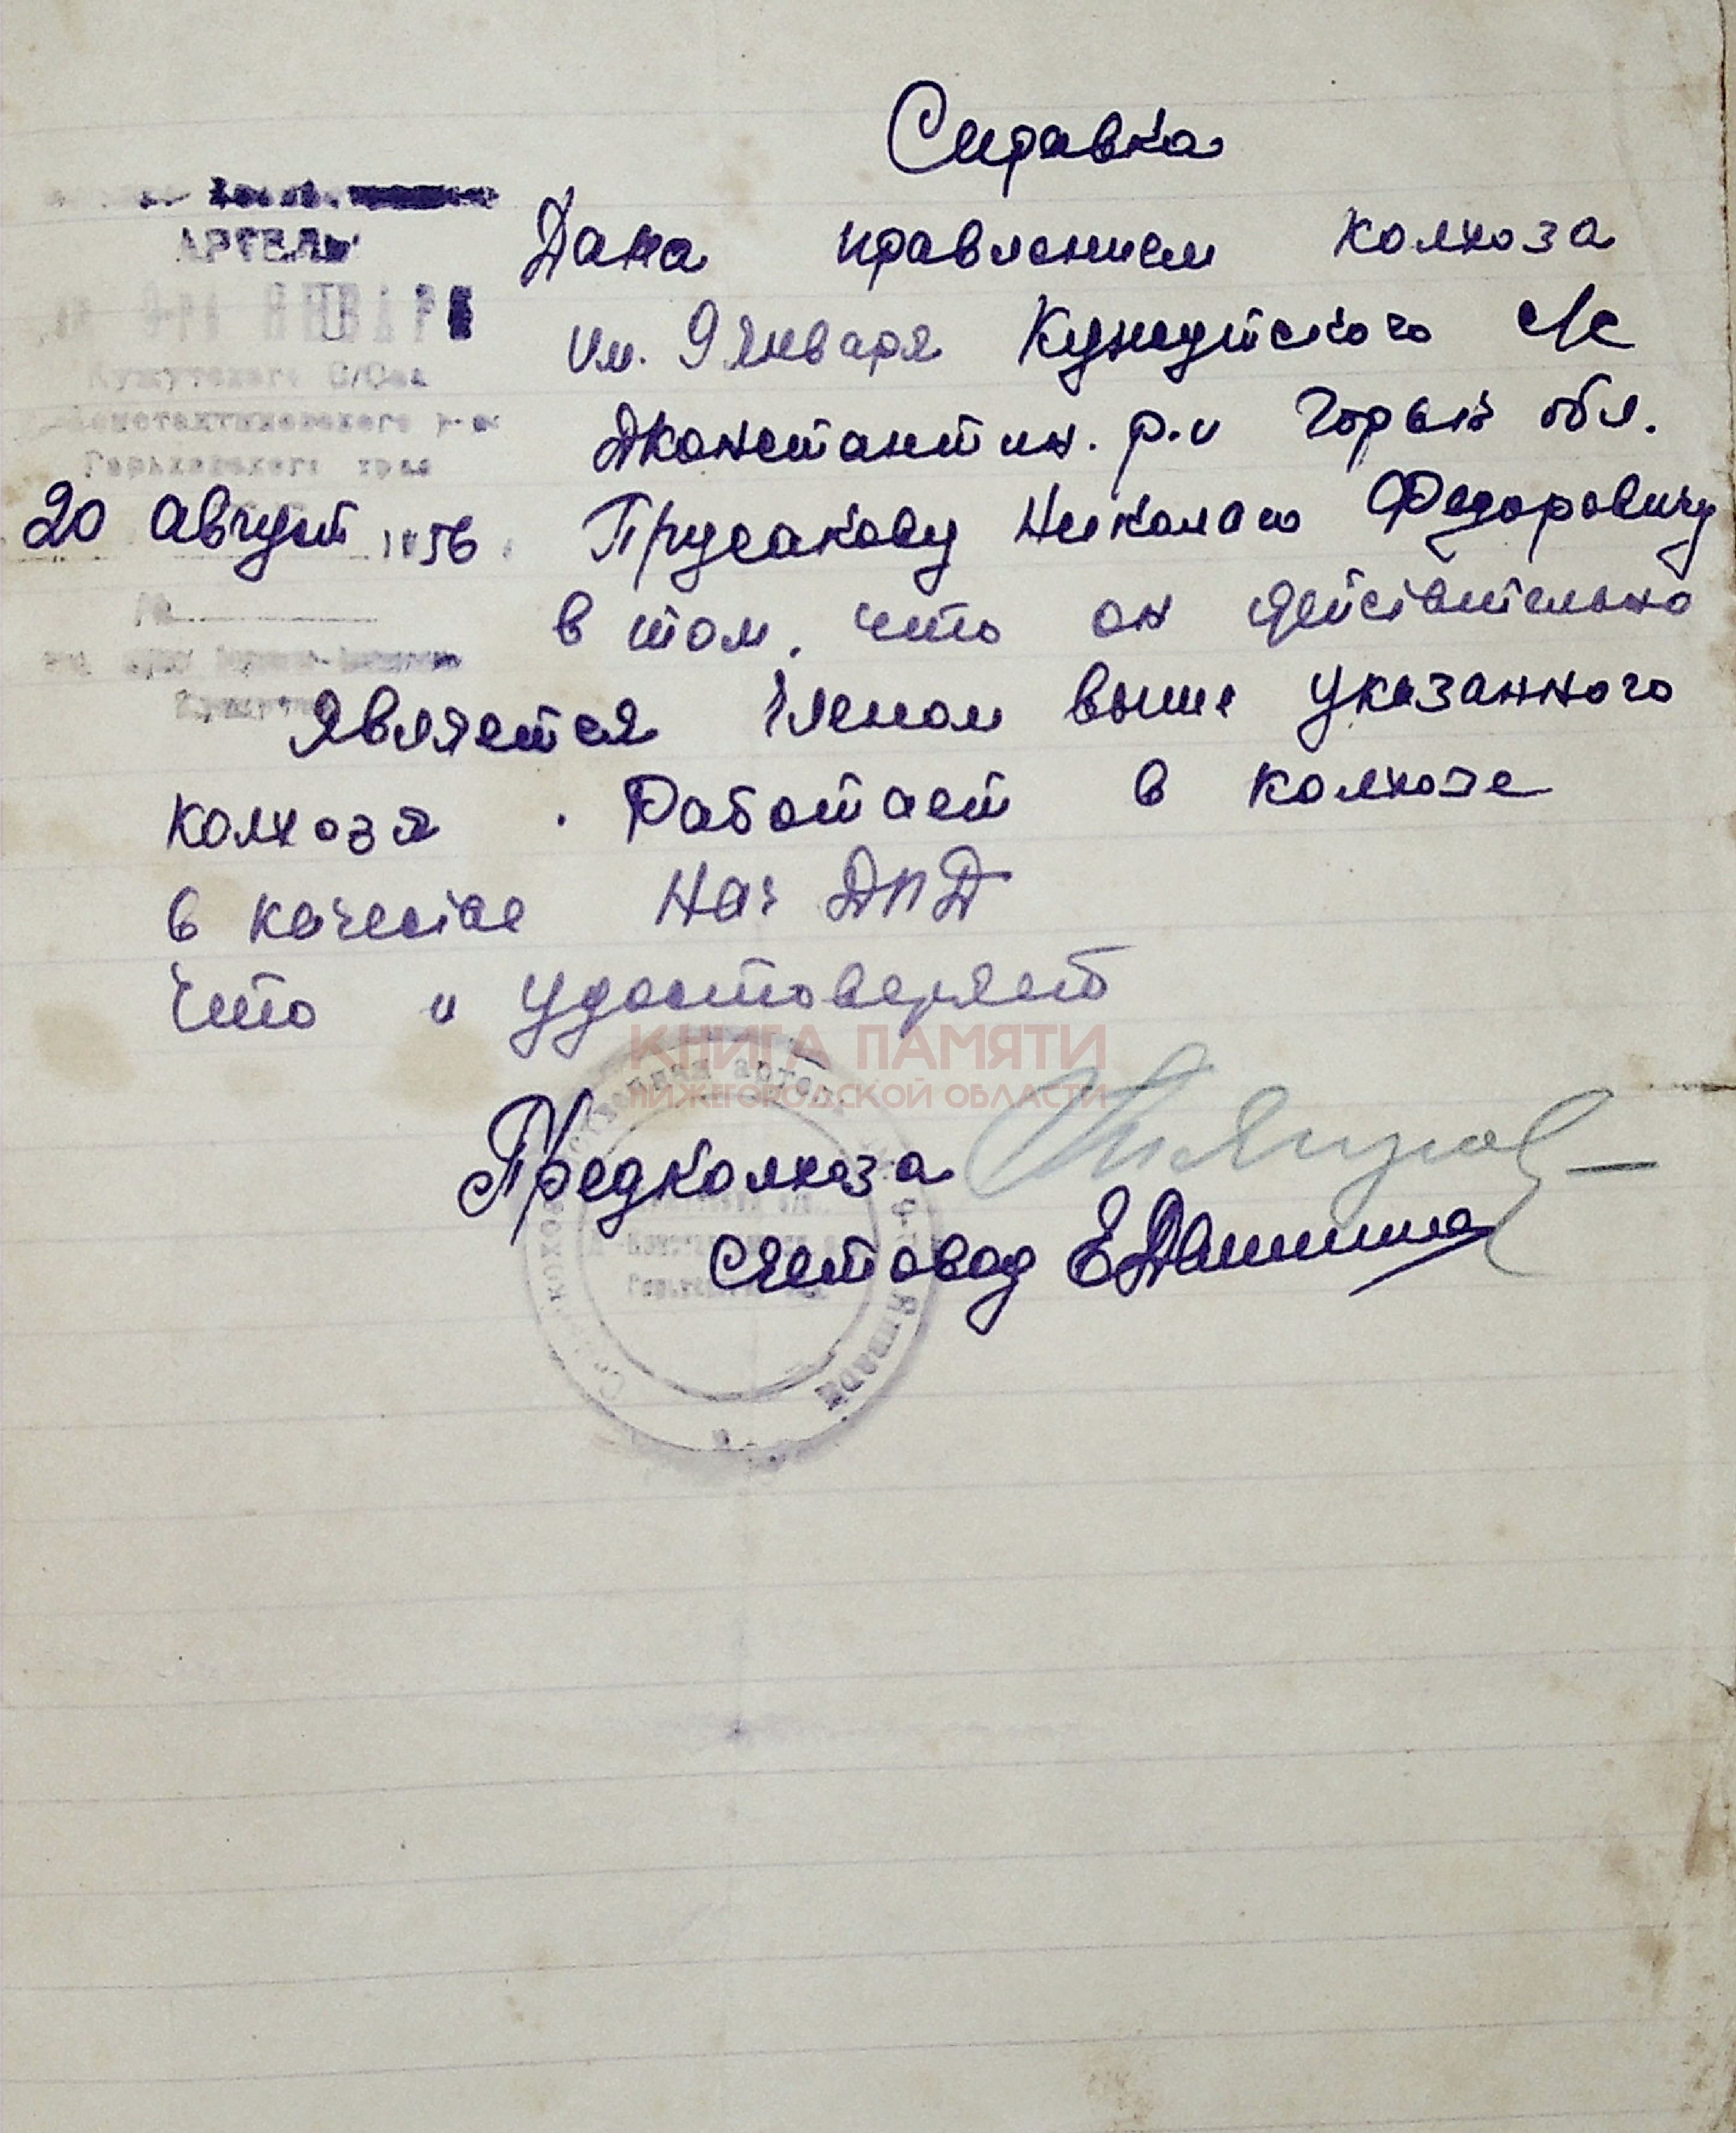 Справка
АРТЕЛЬ
9-го ЯНВАРЯ
Кужутского С/Сов
Константиновского р-на
Горьковского края
20 август 1956
№
Дана правлением колхоза
им. 9 января Кужутского с/с
Дконстантин. р.и Горьк обл.
Прусакову Николаю Федоровичу
в том, что он действительно
является членом выше указанного
колхоза. Работает в колхозе
в качестве Нач ДПД
что и удостоверяет
КНИГА ПАМЯТИ
НИЖЕГОРОДСКОЙ ОБЛАСТИ
Предколхоза
счетовод
Января